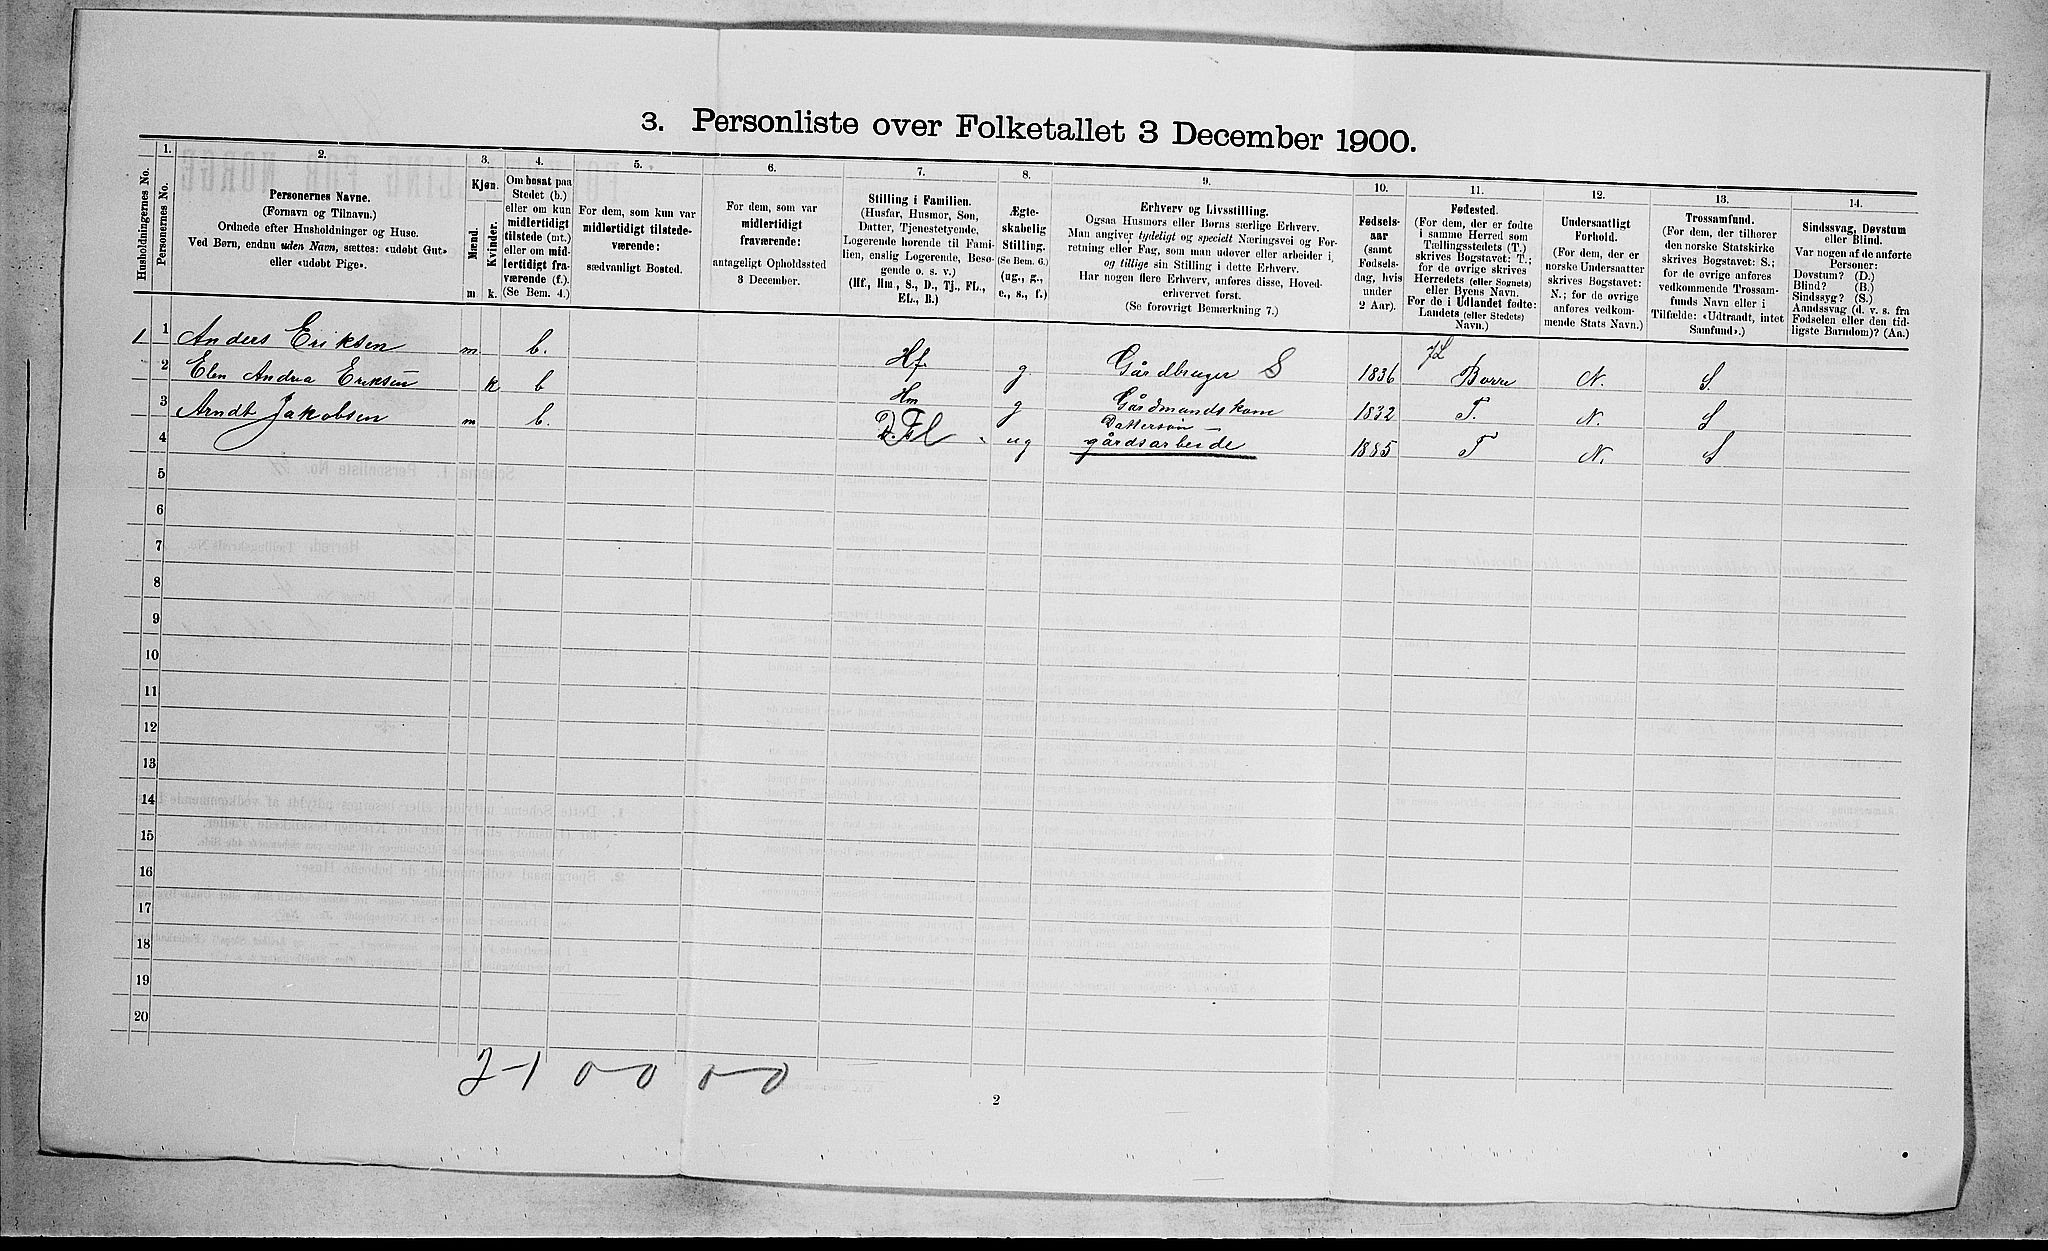 3. Personliste over Folketallet 3 December 1900.
Husholdningernes No.
1.
Personernes No.
2.
Personernes Navne.
(Fornavn og Tilnavn.)
Ordnede efter Husholdninger og Huse.
Ved Børn, endnu uden Navn, sættes: «udøbt Gut»
eller «udøbt Pige».
3.
Kjøn.
Mænd.
Kvinder.
m
k.
4.
Om bosat paa
Stedet (b.)
eller om kun
midlertidigt
tilstede (mt.)
eller om mid-
lertidigt fra-
værende (f.).
(Se Bem. 4.)
5.
For dem, som kun var
midlertidigt tilstede-
værende:
sædvanligt Bosted.
6.
For dem, som var
midlertidigt
fraværende:
antageligt Opholdssted
3 December.
7.
Stilling i Familien.
(Husfar, Husmor, Søn,
Datter, Tjenestetyende,
Logerende hørende til Fami-
lien, enslig Logerende, Besø-
gende o. s. v.)
(Hf., Hm., S., D., Tj., FL.,
EL., B.)
8.
Ægte-
skabelig
Stilling.
(Se Bem. 6.)
(ug., g.,
e., s., f.)
9.
Erhverv og Livsstilling.
Ogsaa Husmors eller Børns særlige Erhverv.
Man angiver tydeligt og specielt Næringsvei og For-
retning eller Fag, som man udøver eller arbeider i,
og tillige sin Stilling i dette Erhverv.
Har nogen flere Erhverv, anføres disse, Hoved-
erhvervet først.
(Se forøvrigt Bemærkning 7.)
10.
Fødsels-
aar
(samt
Fødsels-
dag, hvis
under
2 Aar).
11.
Fødested.
(For dem, der er fødte
i samme Herred som
Tællingsstedets (T.)
skrives Bogstavet: T.;
for de øvrige skrives
Herredets (eller Sognets)
eller Byens Navn.
For de i Udlandet fødte:
Landets (eller Stedets)
Navn.)
12.
Undersaatligt
Forhold.
(For dem, der er
norske Undersaatter
skrives Bogstavet:
N.; for de øvrige
anføres vedkom-
mende Stats Navn.)
13.
Trossamfund.
(For dem, der tilhører
den norske Statskirke
skrives Bogstavet: S.;
for de øvrige anføres
vedkommende Trossam-
funds Navn eller i
Tilfælde: «Udtraadt, intet
Samfund».)
14.
Sindssvag, Døvstum
eller Blind.
Var nogen af de anførte
Personer:
Døvstum? (D.)
Blind? (B.)
Sindssyg? (S.)
Aandssvag (d. v. s. fra
Fødselen eller den tid-
ligste Barndom)? (Aa.)
1 1 Anders Eriksen m b. Hf. g Gårdbruger S 1836 Borre N. S
2 Elen Andrea Eriksen k b Hm g Gårdmandskone 1832 T. N. S
3 Arndt Jakobsen m b. D. FL ug Dattersøn
gårdsarbeide 1885 T N. S
4
5
6
7
8
9
10
11
12
13
14
15
16
17
18
19
20
2-1 0-0 0-0
2